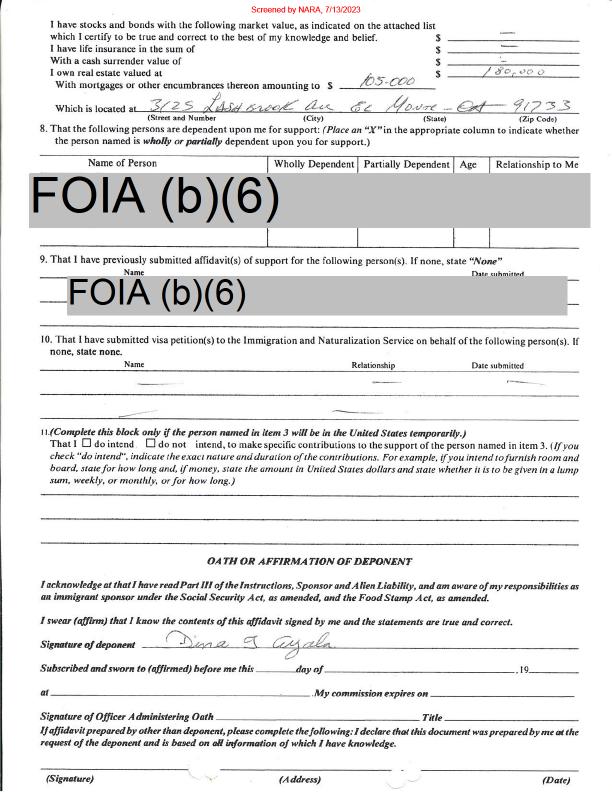 Screened by NARA, 7/13/2023
I have stocks and bonds with the following market value, as indicated on the attached list
which I certify to be true and correct to the best of my knowledge and belief. $ —
I have life insurance in the sum of $ —
With a cash surrender value of $ -
I own real estate valued at $ 180,000
With mortgages or other encumbrances thereon amounting to $ 105-000
Which is located at 3125 Lashbrook Av El Monte - 91733
(Street and Number) (City) (State) (Zip Code)
8. That the following persons are dependent upon me for support: (Place an "X" in the appropriate column to indicate whether
the person named is wholly or partially dependent upon you for support.)
Name of Person Wholly Dependent Partially Dependent Age Relationship to Me
FOIA (b)(6)
9. That I have previously submitted affidavit(s) of support for the following person(s). If none, state "None"
Name Date submitted
FOIA (b)(6)
10. That I have submitted visa petition(s) to the Immigration and Naturalization Service on behalf of the following person(s). If
none, state none.
Name Relationship Date submitted
— — —
— —
11.(Complete this block only if the person named in item 3 will be in the United States temporarily.)
That I ☐ do intend ☐ do not intend, to make specific contributions to the support of the person named in item 3. (If you
check "do intend", indicate the exact nature and duration of the contributions. For example, if you intend to furnish room and
board, state for how long and, if money, state the amount in United States dollars and state whether it is to be given in a lump
sum, weekly, or monthly, or for how long.)
OATH OR AFFIRMATION OF DEPONENT
I acknowledge at that I have read Part III of the Instructions, Sponsor and Alien Liability, and am aware of my responsibilities as
an immigrant sponsor under the Social Security Act, as amended, and the Food Stamp Act, as amended.
I swear (affirm) that I know the contents of this affidavit signed by me and the statements are true and correct.
Signature of deponent Dina I Ayala
Subscribed and sworn to (affirmed) before me this day of ,19
at .My commission expires on
Signature of Officer Administering Oath Title
If affidavit prepared by other than deponent, please complete the following: I declare that this document was prepared by me at the
request of the deponent and is based on all information of which I have knowledge.
(Signature) (Address) (Date)